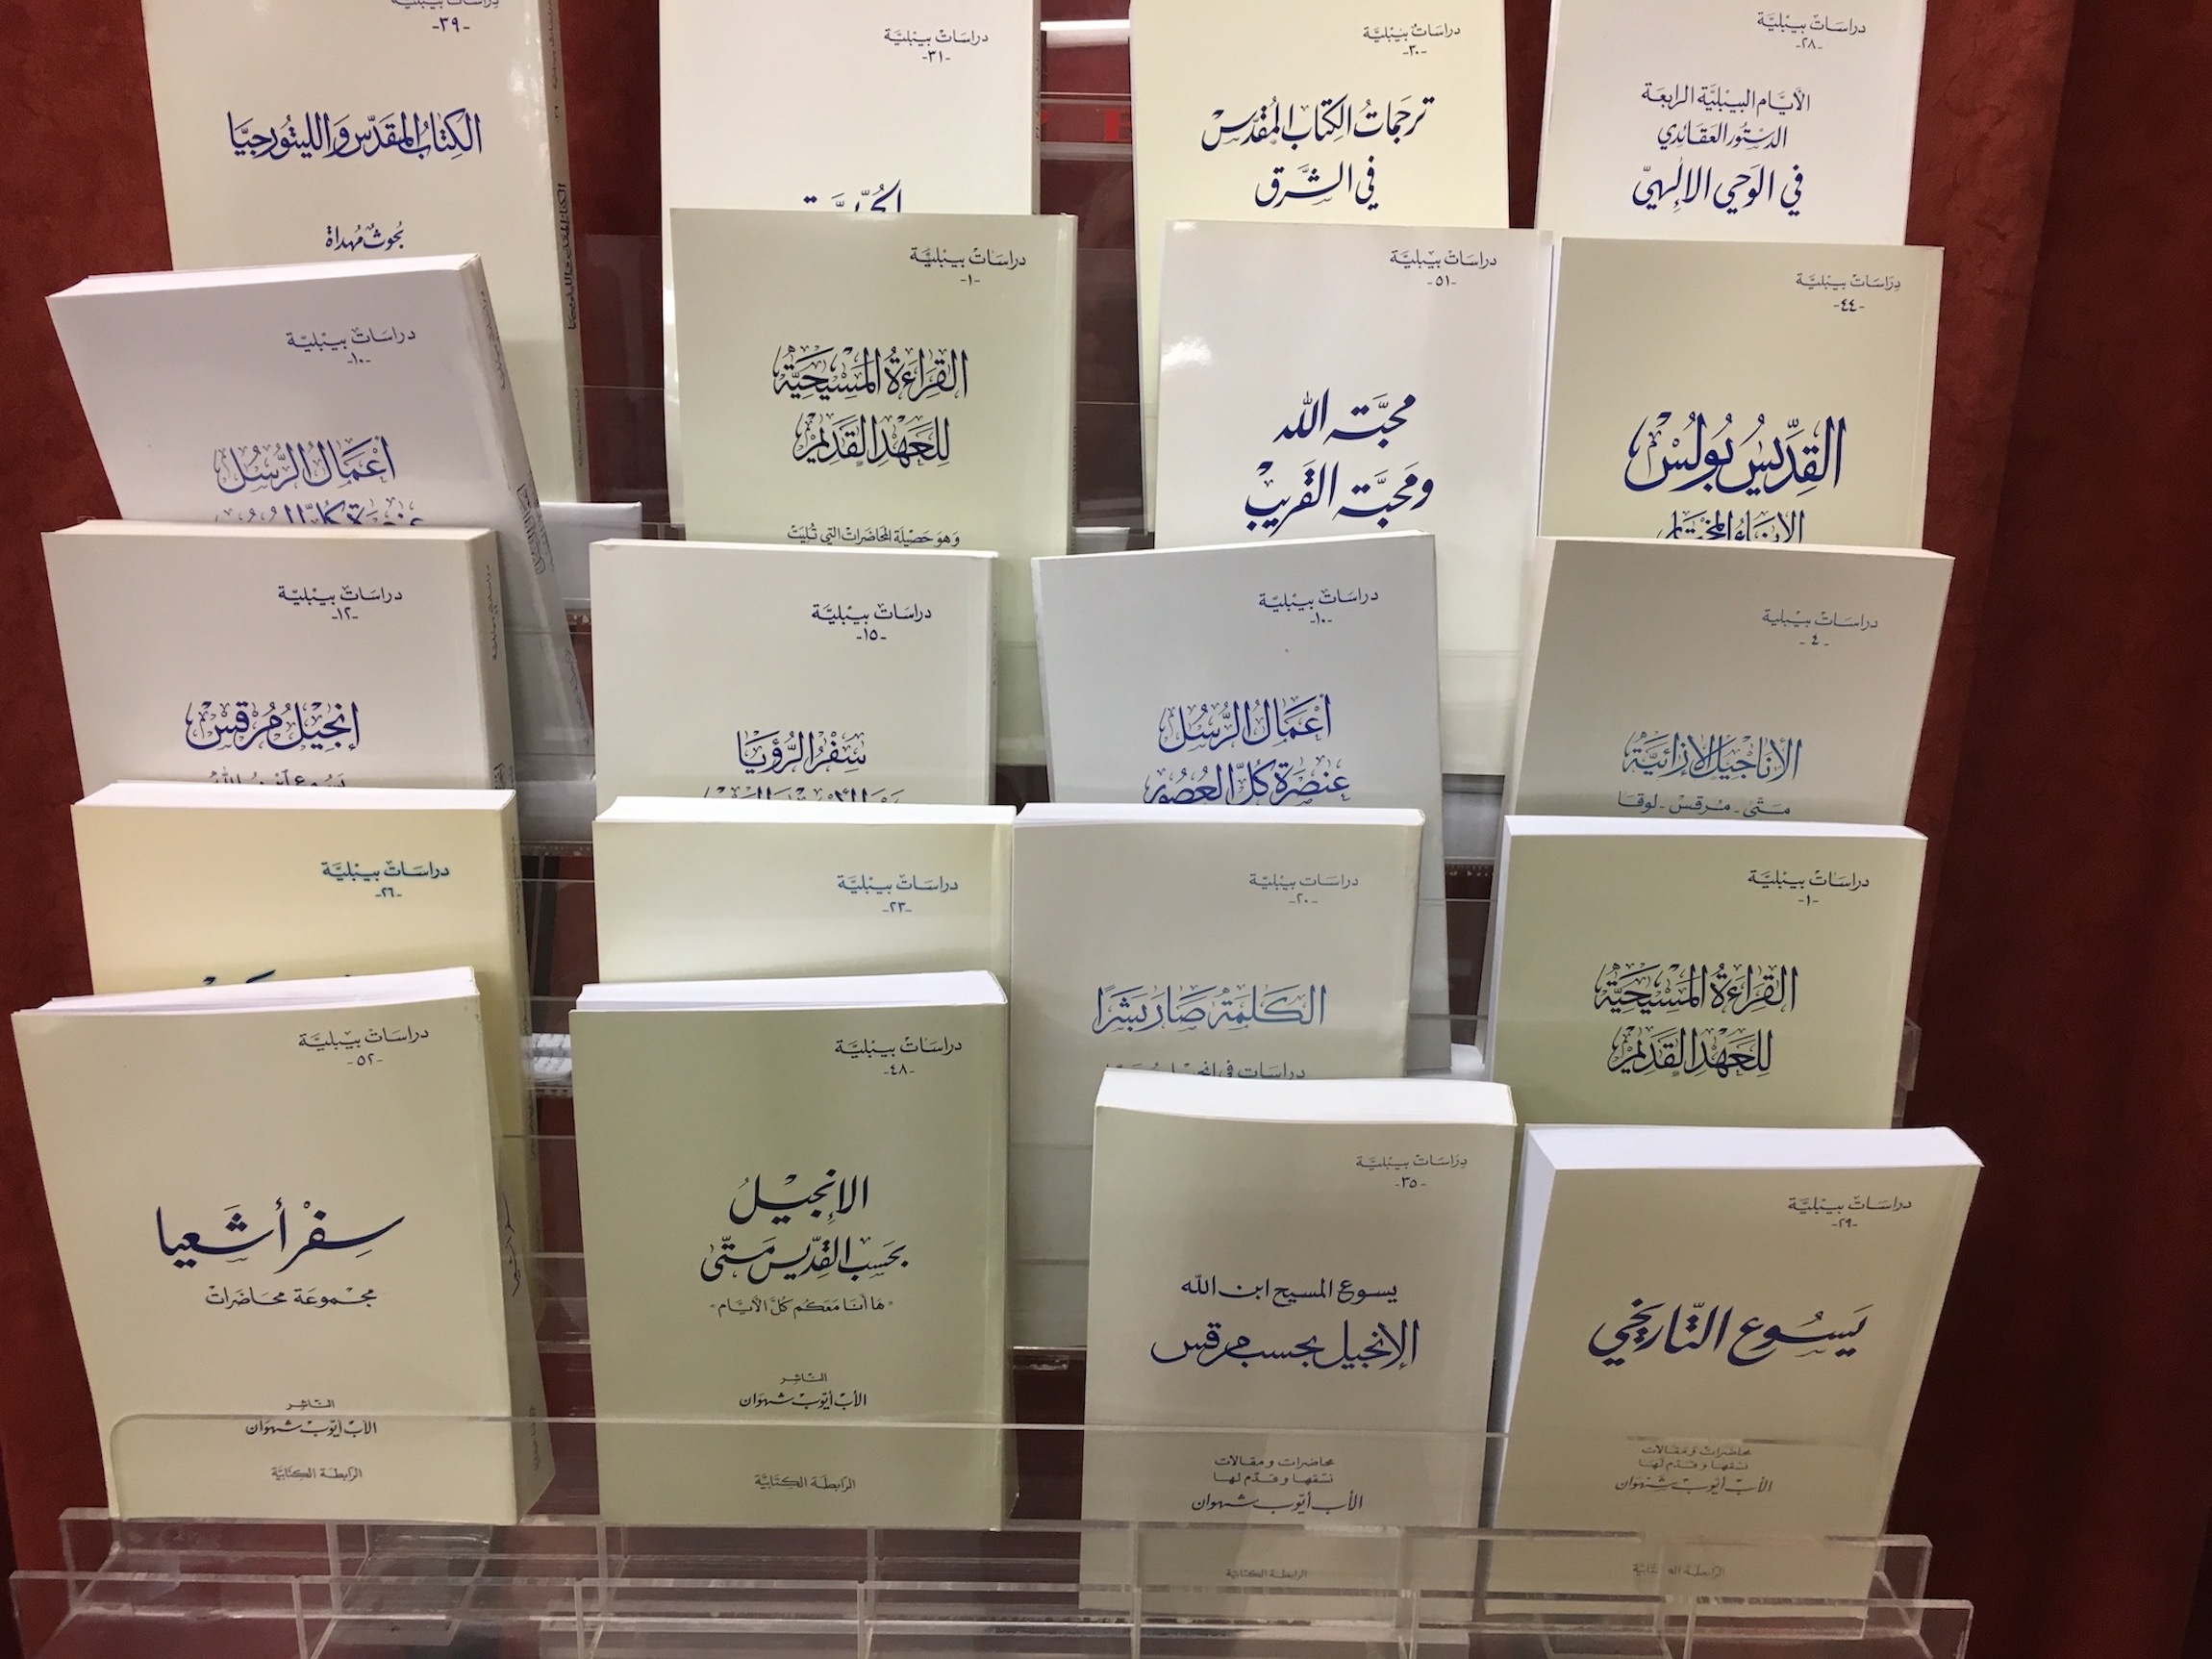 دراسات بيبليّة
-٣٩-
الكتاب المقدّس والليتورجيّا
بحوث مهداة
دراسات بيبليّة
-٣١-
دراسات بيبليّة
-٣٠-
ترجمات الكتاب المقدّس
في الشّرق
دراسات بيبليّة
-٢٨-
الأيّام البيبليّة الرابعة
الدستور العقائدي
في الوحي الإلهيّ
دراسات بيبليّة
-١٠-
أعمال الرّسل
عنصرة كلّ العصور
دراسات بيبليّة
-١-
القراءة المسيحيّة
للعهد القديم
وهو حصيلة المحاضرات التي تُليت
دراسات بيبليّة
-٥١-
محبّة الله
ومحبّة القريب
دراسات بيبليّة
-٤٤-
القدّيس بولس
دراسات بيبليّة
-١٢-
إنجيل مرقس
يسوع ابن الله
دراسات بيبليّة
-١٥-
سفر الرّؤيا
دراسات بيبليّة
-١٠-
أعمال الرّسل
عنصرة كلّ العصور
دراسات بيبلية
-٤-
الأناجيل الإزائيّة
متّى - مرقس - لوقا
دراسات بيبليّة
-٢٦-
دراسات بيبليّة
-٢٣-
دراسات بيبليّة
-٢٠-
الكلمة صار بشرًا
دراسات في إنجيل
دراسات بيبليّة
-١-
القراءة المسيحيّة
للعهد القديم
دراسات بيبليّة
-٥٢-
سفر أشعيا
مجموعة محاضرات
الناشر
الأب أيّوب شهوان
الرابطة الكتابيّة
دراسات بيبليّة
-٤٨-
الإنجيل
بحسب القدّيس متّى
"ها أنا معكم كلّ الأيّام"
الناشر
الأب أيّوب شهوان
الرابطة الكتابيّة
دراسات بيبليّة
-٣٥-
يسوع المسيح ابن الله
الإنجيل بحسب مرقس
محاضرات ومقالات
نسّقها وقدّم لها
الأب أيّوب شهوان
الرابطة الكتابيّة
دراسات بيبليّة
-٢٩-
يسوع التّاريخي
محاضرات ومقالات
نسّقها وقدّم لها
الأب أيّوب شهوان
الرابطة الكتابيّة